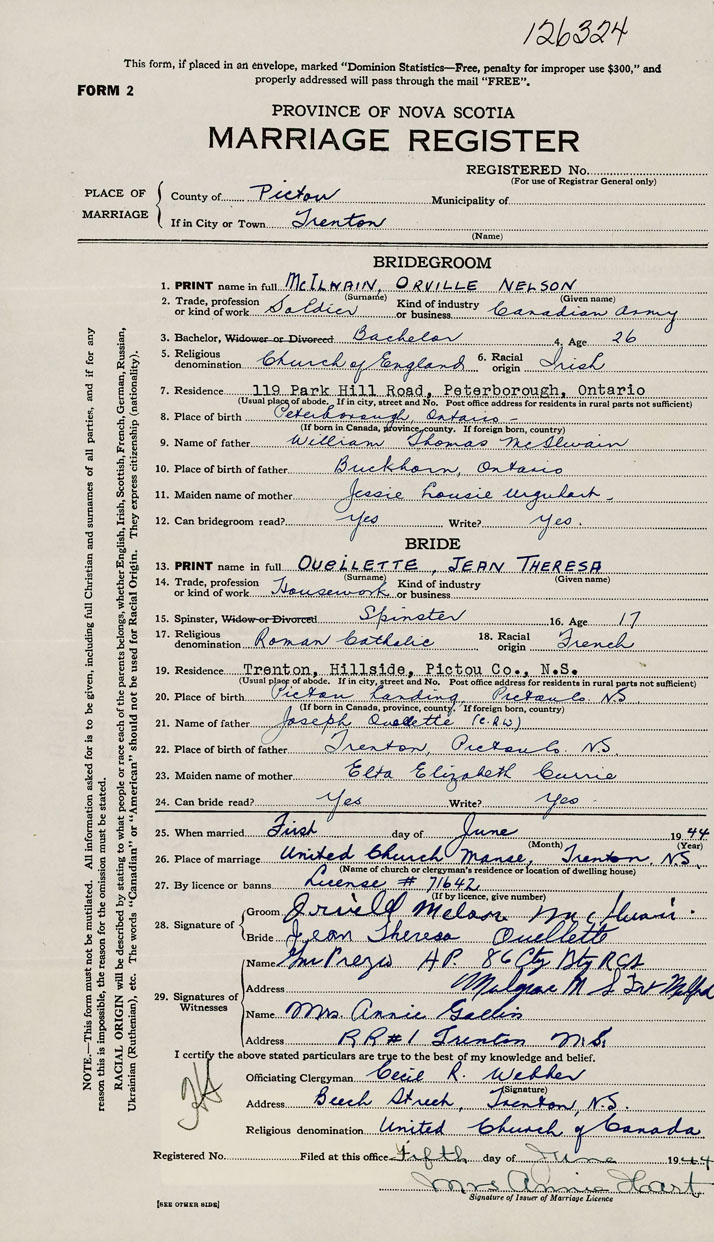 126324
This form, if placed in an envelope, marked "Dominion Statistics—Free, penalty for improper use $300," and
properly addressed will pass through the mail "FREE".
FORM 2
PROVINCE OF NOVA SCOTIA
MARRIAGE REGISTER
REGISTERED No.
(For use of Registrar General only)
PLACE OF MARRIAGE
County of Pictou Municipality of
If in City or Town Trenton
(Name)
BRIDEGROOM
1. PRINT name in full McILWAIN, ORVILLE NELSON
(Surname) (Given name)
2. Trade, profession or kind of work Soldier Kind of industry or business Canadian Army
3. Bachelor, Widower or Divorced Bachelor 4. Age 26
5. Religious denomination Church of England 6. Racial origin Irish
7. Residence 119 Park Hill Road, Peterborough, Ontario
(Usual place of abode. If in city, street and No. Post office address for residents in rural parts not sufficient)
8. Place of birth Peterborough, Ontario
(If born in Canada, province, county. If foreign born, country)
9. Name of father William Thomas McIlwain
10. Place of birth of father Buckhorn, Ontario
11. Maiden name of mother Jessie Lousie Urquhart
12. Can bridegroom read? Yes Write? Yes.
BRIDE
13. PRINT name in full OUELLETTE, JEAN THERESA
(Surname) (Given name)
14. Trade, profession or kind of work Housework Kind of industry or business
15. Spinster, Widow or Divorced Spinster 16. Age 17
17. Religious denomination Roman Catholic 18. Racial origin French
19. Residence Trenton, Hillside, Pictou Co., N.S.
(Usual place of abode. If in city, street and No. Post office address for residents in rural parts not sufficient)
20. Place of birth Pictou Landing, Pictou Co. NS
(If born in Canada, province, county. If foreign born, country)
21. Name of father Joseph Ouellette
22. Place of birth of father Trenton, Pictou Co. NS.
23. Maiden name of mother Elta Elizabeth Currie
24. Can bride read? Yes Write? Yes
25. When married First day of June 1944
(Month) (Year)
26. Place of marriage United Church Manse, Trenton, NS.
(Name of church or clergyman's residence or location of dwelling house)
27. By licence or banns License # 71642
(If by licence, give number)
28. Signature of
Groom Nelson
Bride Jean Theresa Ouellette
29. Signatures of Witnesses
Name
Address
Name Mrs. Annie
Address RR#1 Trenton N.S.
I certify the above stated particulars are true to the best of my knowledge and belief.
Officiating Clergyman Cecil R. Webber
(Signature)
Address Beech Street, Trenton, NS.
Religious denomination United Church of Canada
Registered No. Filed at this office Fifth day of June 1944
Mrs Annie Hart
Signature of Issuer of Marriage Licence
[SEE OTHER SIDE]
NOTE.—This form must not be mutilated. All information asked for is to be given, including full Christian and surnames of all parties, and if for any
reason this is impossible, the reason for the omission must be stated.
RACIAL ORIGIN will be described by stating to what people or race each of the parents belongs, whether English, Irish, Scottish, French, German, Russian,
Ukrainian (Ruthenian), etc. The words "Canadian" or "American" should not be used for Racial Origin. They express citizenship (nationality).